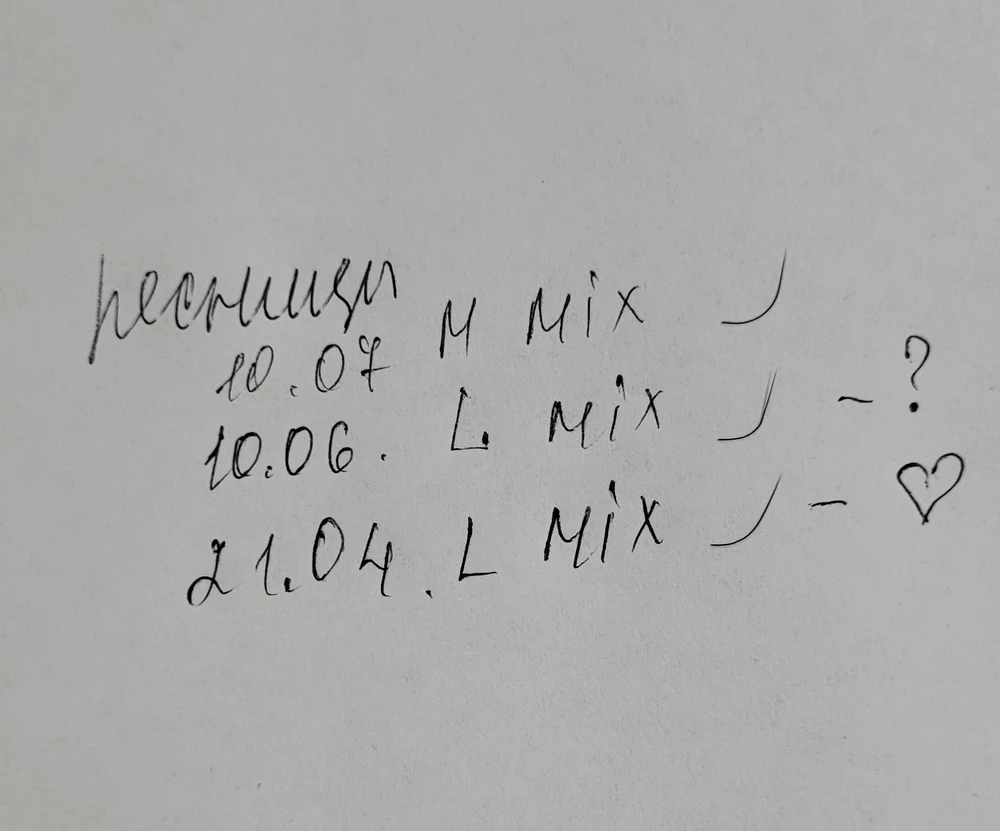 ресницы
10.07 M Mix
10.06. L. Mix - ?
21.04. L Mix - ♡